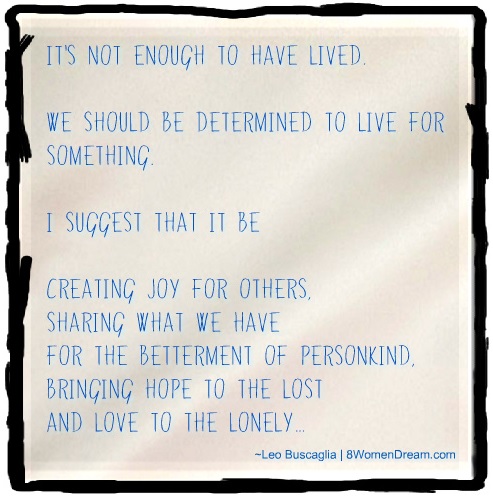 IT'S NOT ENOUGH TO HAVE LIVED.
WE SHOULD BE DETERMINED TO LIVE FOR
SOMETHING.
I SUGGEST THAT IT BE
CREATING JOY FOR OTHERS,
SHARING WHAT WE HAVE
FOR THE BETTERMENT OF PERSONKIND,
BRINGING HOPE TO THE LOST
AND LOVE TO THE LONELY...
~Leo Buscaglia | 8WomenDream.com